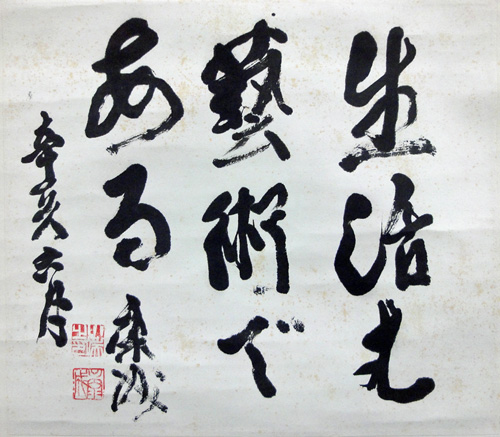 生活も
藝術で
ある
辛亥六月
康成